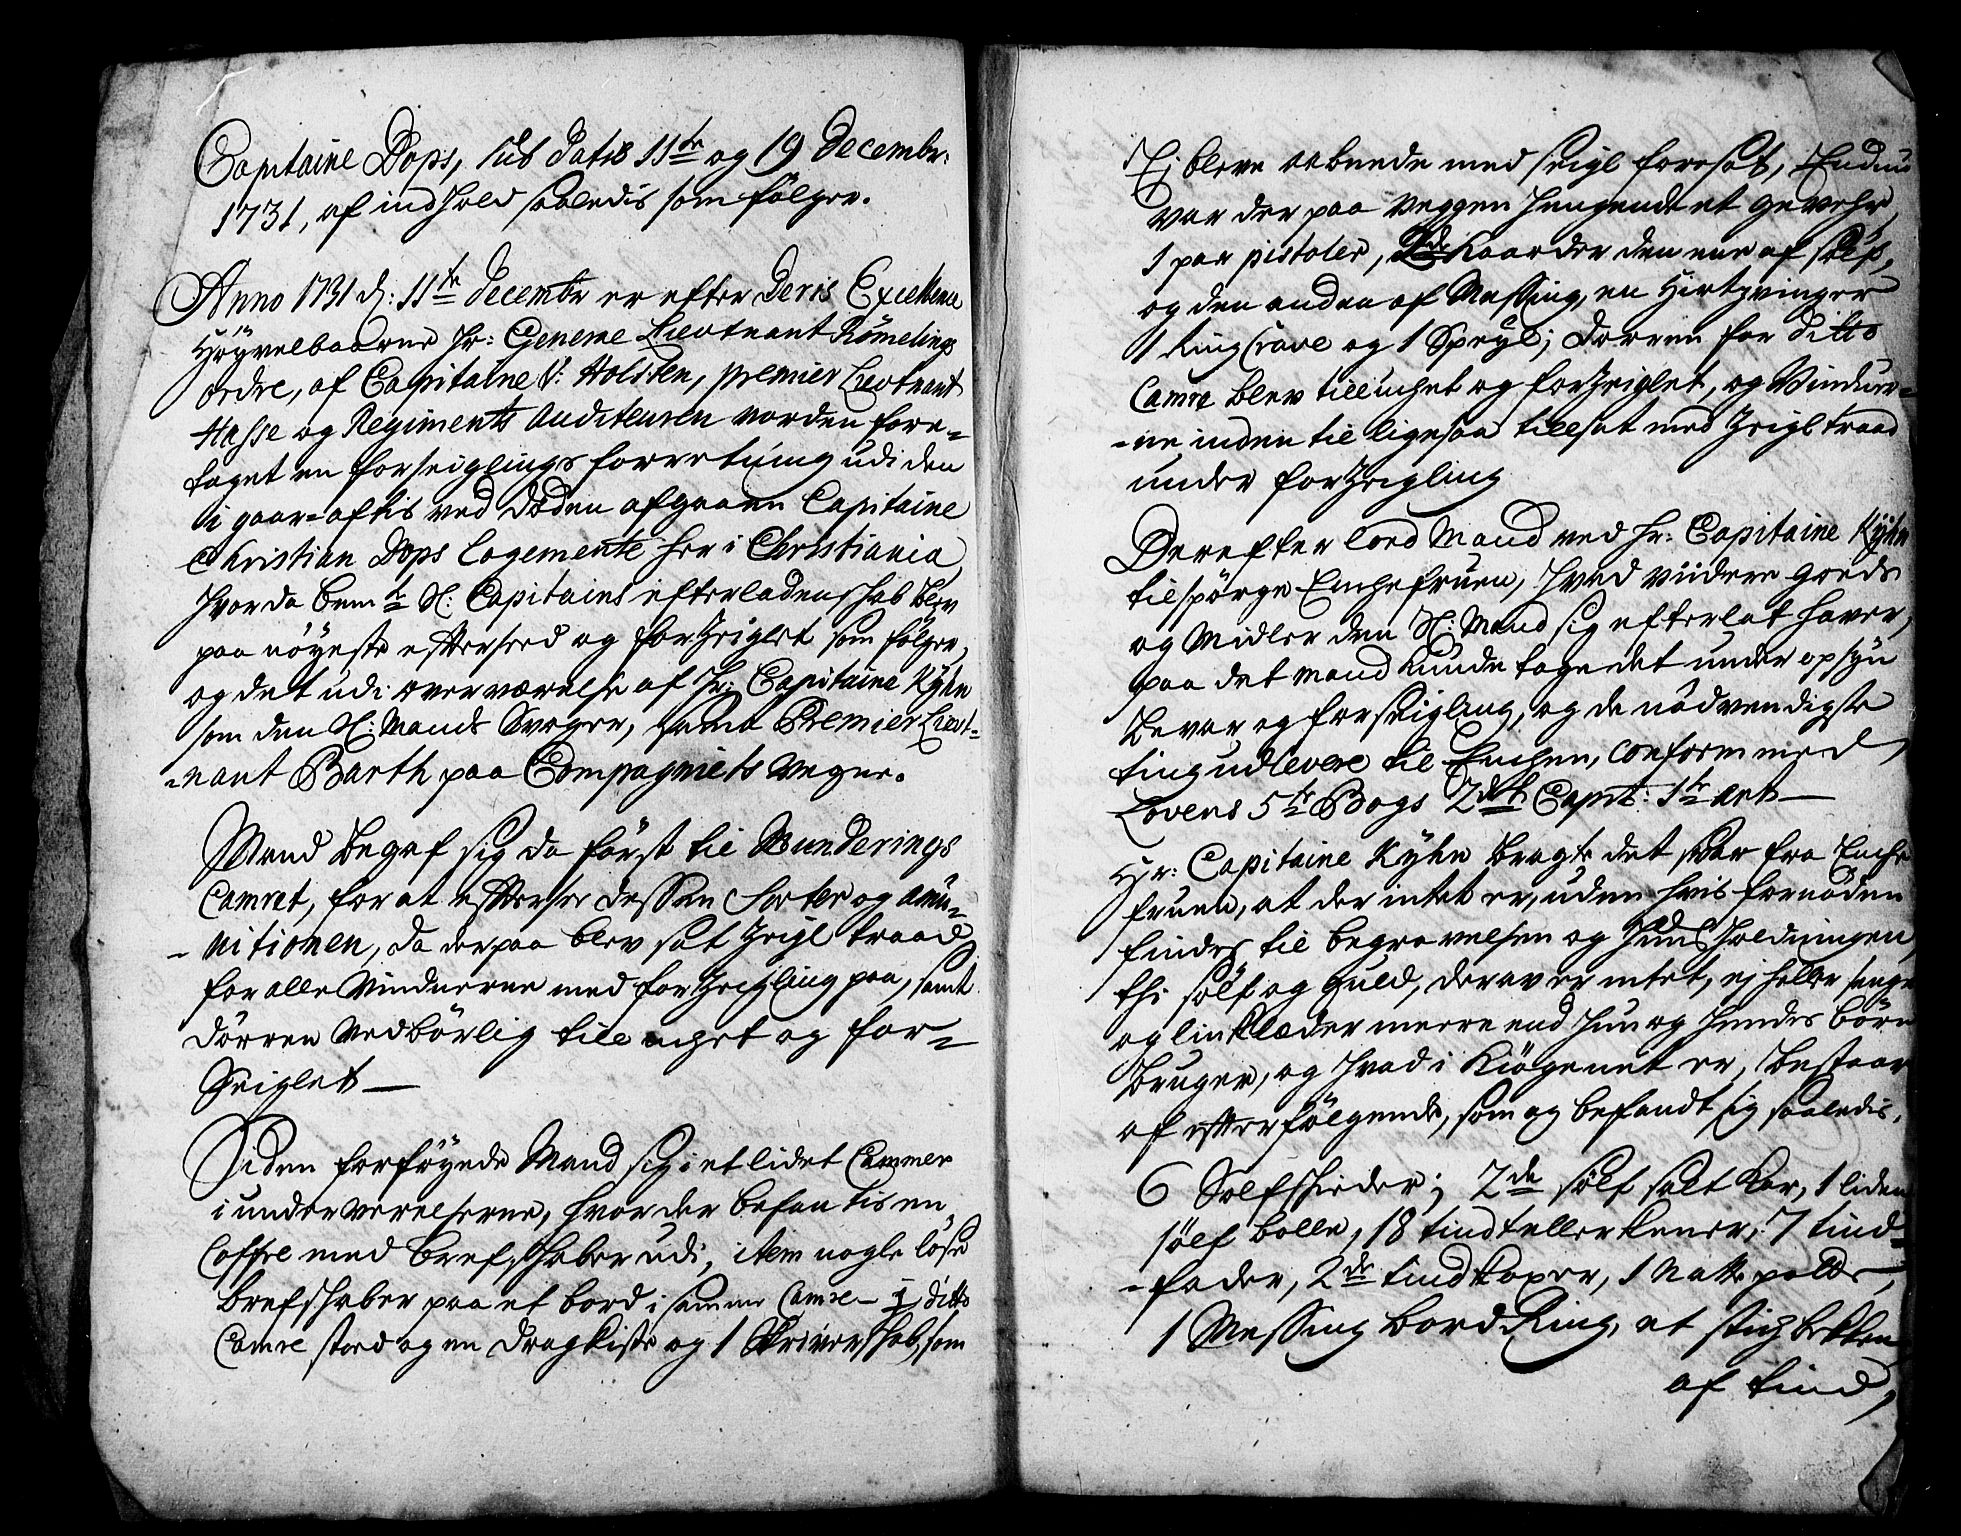 Capitaine Dops, sub Datis 11te og 19 Decembr:
1731, af indhold saaledis som følger.
Anno 1731 d: 11te Decembr er efter Deris Excellence
Höyvelbaarne Hr: General Lieutnant Rømelings
ordre, af Capitaine V: Holsten, premier Lieutnant
Hasse og Regiments Auditeuren vorden fore-
taget en forseiglings forretning udi den
i gaar-aftis ved Døden afgaaen Capitaine
Christian Dops Logemente her i Christiania,
hvor da bemte Sl: Capitains efterladenskab blev
paa nøyeste efterseed og forZeiglet som følger,
og det udi overværelse af Hr: Capitaine Kyhn
som den Sl: Mands Svoger, samt Premier Lieut-
-nant Barth paa Compagniets vegne.
Mand begaf sig da først til Munderings
Camret, for at efftersee dessen Sorter og Amu-
-nitionen, da der paa blev sat Zeigl traad
for alle Vinduerne med forZeigling paa, samt
Dørren vedbørlig tillucket og for-
Seiglet —
Siden forføyede Mand sig i et lidet Cammer
i underverelserne, hvor der befantis en
Coffre med brefskaber udi, item nogle løse
brefskaber paa et bord i samme Camre — i ditto
Camre stoed og en Dragkiste og 1 Skriverskab, som
Ej bleve aabnede med seigl forsat, Endnu
var der paa veggen hengende et gevehr,
1 par pistoler, 2de Kaarder den ene af sølf,
og den anden af Messing, en Hirtzvinger
1 Ring Crave og 1 Speyl; Dørren for ditto
Camre blev tillucket og forZeiglet, og Vinduer-
-ne inden til ligesaa tillsat med Zeigl traad
under forZeigling
Derefter loed Mand ved Hr: Capitaine Kyhn
tilspørge Enchefruen, hvad viidere goeds
og Midler den Sl: Mand sig efterlat haver,
paa det mand kunde tage det under opsyn
bevar og forseigling, og de nødvendigste
ting udlevere til Enchen, conform med
Lovens 5te Bogs 2det Capit: 1te Art —
Hr: Capitaine Kyhn bragte det svar fra Enche
fruen, at der intet er, uden hvis fornøden
findes til begravelsen og Huusholdningen,
thi sølf og Guld, derav er intet, ej heller senge
og linklæder meere end hun og hendes børn
bruger, og hvad i Kiøgenet er, bestaar
af effterfølgende, som og befandt sig saaledis.
6 Sølfskieder; 2de sølf salt Kar, 1 liden
sølf bolle, 18 tind tellerkener, 7 tind-
-fader, 2de tind koper, 1 Natte potte,
1 Messing bord Ring, et stichbekken
af tind,